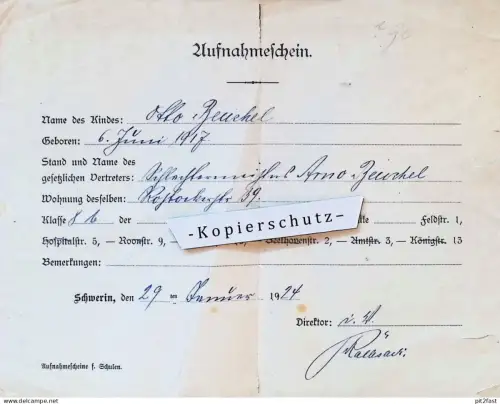 Aufnahmeschein.
Name des Kindes: Otto Beuchel
Geboren: 6. Juni 1917
Stand und Name des
gesetzlichen Vertreters: Schlachtermeister Arno Beuchel
Wohnung desselben: Rostockerstr 39.
Klasse 8 b der Feldstr. 1,
-Kopierschutz-
Hospitalstr. 5, – Roonstr. 9, – Beethovenstr. 2, – Amtstr. 3, – Königstr. 15
Bemerkungen:
Schwerin, den 29 ten Januar 1924
Direktor: i. V.
Aufnahmescheine f. Schulen.
delcampe.net
pit2fast